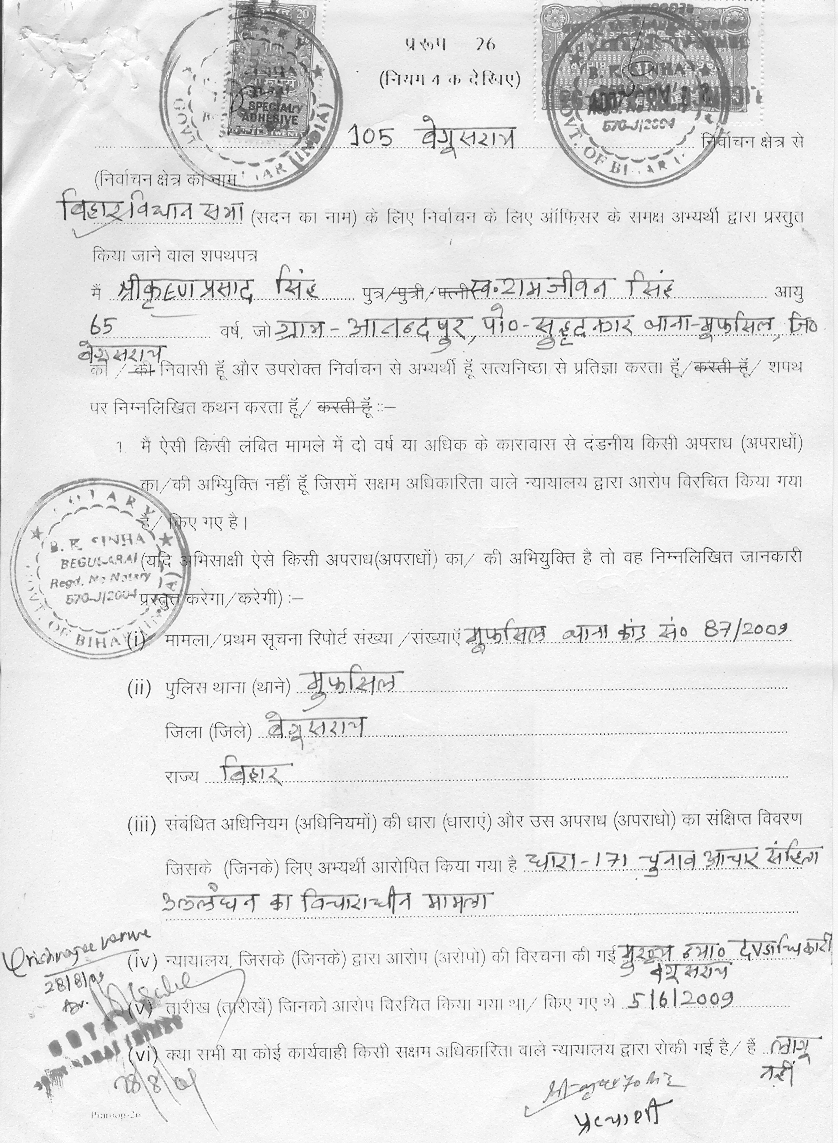 प्ररूप 26
(नियम 4 क देखिए)
105 बेगूसराय निर्वाचन क्षेत्र से
(निर्वाचन क्षेत्र का नाम
बिहार विधान सभा (सदन का नाम) के लिए निर्वाचन के लिए ऑफिसर के समक्ष अभ्यर्थी द्वारा प्रस्तुत
किया जाने वाल शपथपत्र
मैं श्रीकृष्ण प्रसाद सिंह पुत्र/पुत्री/पत्नी स्व० रामजीवन सिंह आयु
65 वर्ष, जो ग्राम - आनन्दपुर, पो०- सुहृदनगर थाना- मुफसिल, जि०
बेगूसराय
का / की निवासी हूँ और उपरोक्त निर्वाचन से अभ्यर्थी हूँ सत्यनिष्ठा से प्रतिज्ञा करता हूँ/ करती हूँ/ शपथ
पर निम्नलिखित कथन करता हूँ/ करती हूँ :–
1. मैं ऐसी किसी लंबित मामले में दो वर्ष या अधिक के कारावास से दंडनीय किसी अपराध (अपराधों)
का/की अभियुक्ति नहीं हूँ जिसमें सक्षम अधिकारिता वाले न्यायालय द्वारा आरोप विरचित किया गया
है/ किए गए है।
(यदि अभिसाक्षी ऐसे किसी अपराध(अपराधों) का/ की अभियुक्ति है तो वह निम्नलिखित जानकारी
प्रस्तुत करेगा/करेगी) :–
(i) मामला/प्रथम सूचना रिपोर्ट संख्या /संख्याएँ मुफसिल थाना कांड सं० 87/2009
(ii) पुलिस थाना (थाने) मुफसिल
जिला (जिले) बेगूसराय
राज्य बिहार
(iii) संबंधित अधिनियम (अधिनियमों) की धारा (धाराएं) और उस अपराध (अपराधो) का संक्षिप्त विवरण
जिसके (जिनके) लिए अभ्यर्थी आरोपित किया गया है धारा-171 चुनाव आचार संहिता
उल्लंघन का विचाराधीन मामला
(iv) न्यायालय, जिसके (जिनके) द्वारा आरोप (अरोपो) की विरचना की गई मुख्य न्या० दण्डाधिकारी
बेगूसराय
(v) तारीख (तारीखें) जिनको आरोप विरचित किया गया था/ किए गए थे 5/6/2009
(vi) क्या सभी या कोई कार्यवाही किसी सक्षम अधिकारिता वाले न्यायालय द्वारा रोकी गई है/ हैं लागू
नहीं
प्रत्याशी
28/8/09
28/8/09
NOTARY
B. K. SINHA
BEGUSARAI
Regd. No Notary
570-J/2004
GOVT. OF BIHAR (INDIA)
B. K. SINHA
570-J/2004
GOVT. OF BIHAR
20
SPECIALTY
ADHESIVE